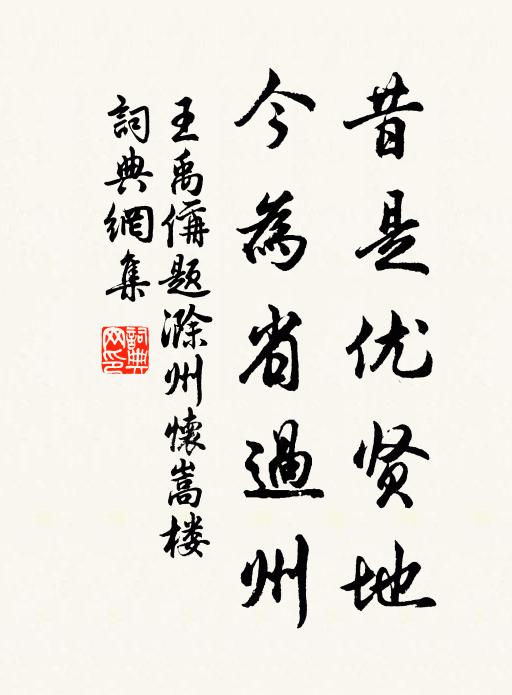 昔是优贤地
今為省過州
王禹偁题滁州懷嵩楼
詞典網集
詞典网印